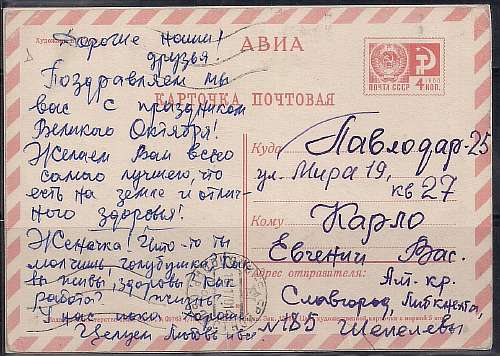 Дорогие наши
друзья!
Поздравляем мы
вас с праздником
Великого Октября!
Желаем Вам всего
самого лучшего, что
есть на земле и отлич-
ного здоровья!
Женечка! Что-то ты
молчишь, голубушка. Как
вы живы, здоровы. Как
работа?
У нас пока
Целуем
АВИА
КАРТОЧКА ПОЧТОВАЯ
ПОЧТА СССР
4 коп.
Куда
Павлодар-25
ул. Мира 19,
кв 27
Кому
Карло
Евгении Вас.
Адрес отправителя:
Алт. кр.
Славгород,
№185 Шепелевы